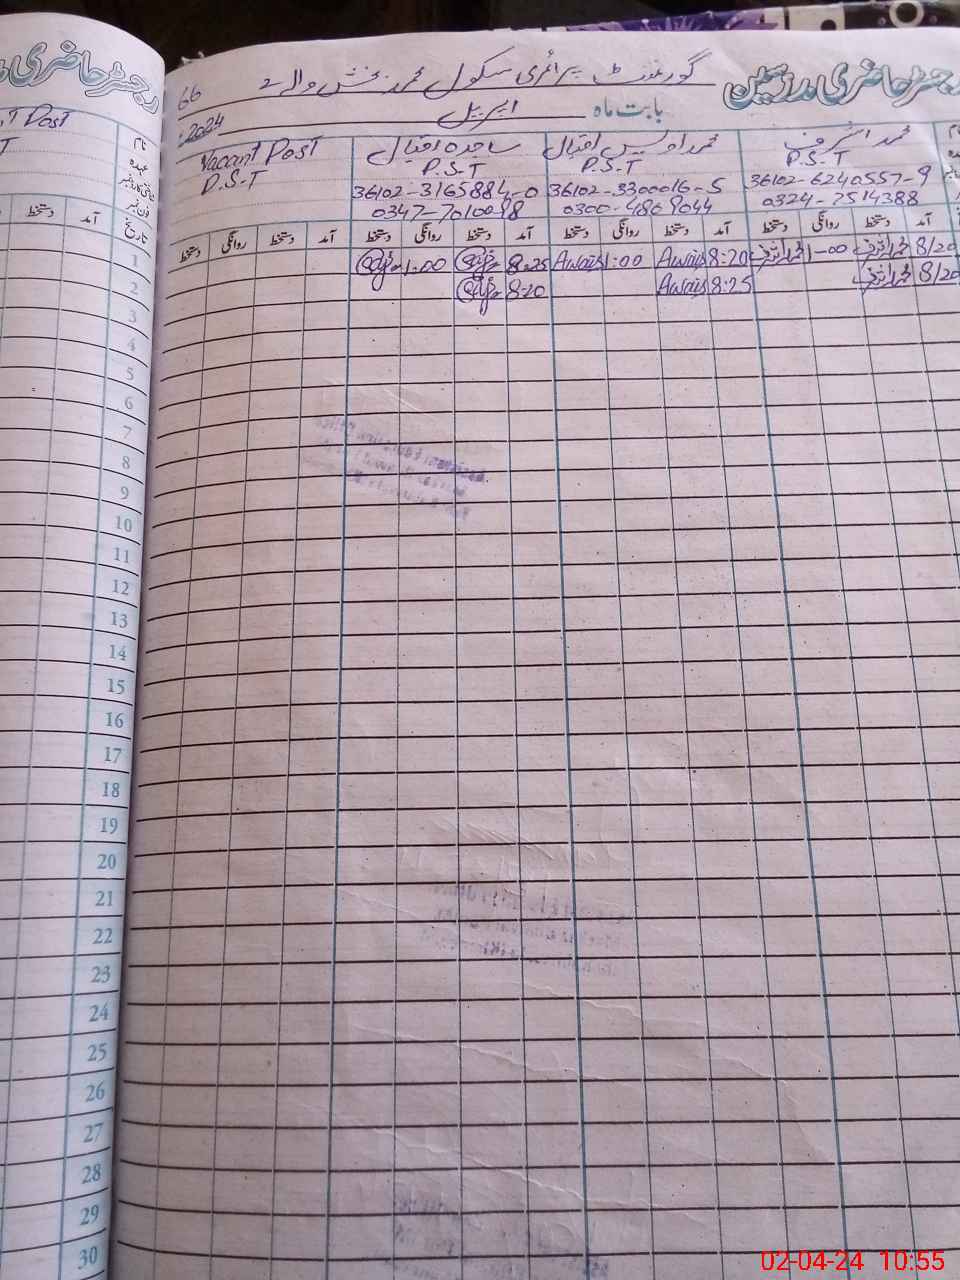 رجسٹر حاضری مدرسین
گورنمنٹ پرائمری سکول محمد بخش والے
66
بابت ماہ اپریل 2024
محمد اشرف
P.S.T
36102-6240557-9
0324-7514388
محمد اویس اقبال
P.S.T
36102-3300016-5
0300-4869044
ساجدہ اقبال
P.S.T
36102-3165884-0
0347-7010098
Vacant Post
P.S.T
آمد دستخط روانگی دستخط آمد دستخط روانگی دستخط آمد دستخط روانگی دستخط آمد دستخط روانگی دستخط
8/20 1-00 8:20 Awais 1:00 Awais 8:25 1:00
8/20 8:25 Awais 8:20
رجسٹر حاضری
Post
نام
عہدہ
فون نمبر
تاریخ آمد دستخط
1
2
3
4
5
6
7
8
9
10
11
12
13
14
15
16
17
18
19
20
21
22
23
24
25
26
27
28
29
30
02-04-24 10:55